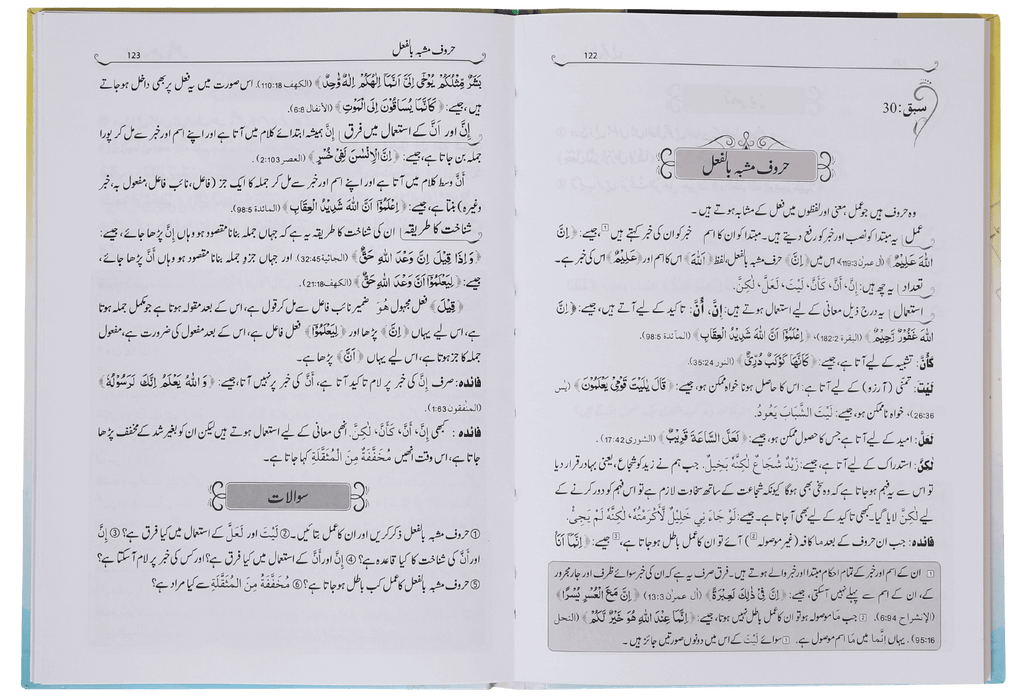 122
سبق:30
حروف مشبہ بالفعل
وہ حروف ہیں جو عمل، معنی اور لفظوں میں فعل کے مشابہ ہوتے ہیں۔
عمل یہ مبتدا کو نصب اور خبر کو رفع دیتے ہیں۔ مبتدا کو ان کا اسم خبر کو ان کی خبر کہتے ہیں، جیسے: ﴿اِنَّ
اللهَ عَلِيْمٌ﴾ (آل عمرٰن 119:3) اس میں ﴿اِنَّ﴾ حرف مشبہ بالفعل، لفظ ﴿اَللهَ﴾ اس کا اسم اور ﴿عَلِيْمٌ﴾ اس کی خبر ہے۔
تعداد یہ چھ ہیں: إِنَّ، أَنَّ، كَأَنَّ، لَيْتَ، لَعَلَّ، لٰكِنَّ.
استعمال یہ درج ذیل معانی کے لیے استعمال ہوتے ہیں: إِنَّ، أَنَّ: تاکید کے لیے آتے ہیں، جیسے: ﴿اِنَّ
اللهَ غَفُوْرٌ رَّحِيْمٌ﴾ (البقرة 182:2)، ﴿اِعْلَمُوْٓا اَنَّ اللهَ شَدِيْدُ الْعِقَابِ﴾ (المائدة 98:5)
كَأَنَّ: تشبیہ کے لیے آتا ہے، جیسے: ﴿كَاَنَّهَا كَوْكَبٌ دُرِّيٌّ﴾ (النور 35:24).
لَيْتَ: تمنی (آرزو) کے لیے آتا ہے: اس کا حاصل ہونا خواہ ممکن ہو، جیسے: ﴿قَالَ يٰلَيْتَ قَوْمِيْ يَعْلَمُوْنَ﴾ (يٰسٓ
26:36)، خواہ ناممکن ہو، جیسے: لَيْتَ الشَّبَابَ يَعُودُ.
لَعَلَّ: امید کے لیے آتا ہے جس کا حصول ممکن ہو، جیسے: ﴿لَعَلَّ السَّاعَةَ قَرِيْبٌ﴾ (الشورٰی 17:42).
لٰكِنَّ: استدراک کے لیے آتا ہے، جیسے: زَيْدٌ شُجَاعٌ لٰكِنَّهُ بَخِيلٌ. جب ہم نے زید کو شجاع، یعنی بہادر قرار دیا
تو اس سے یہ فہم ہوجاتا ہے کہ وہ سخی بھی ہوگا کیونکہ شجاعت کے ساتھ سخاوت لازم ہے تو اس فہم کو دور کرنے کے
لیے لٰكِنَّ لایا گیا۔ کبھی تاکید کے لیے بھی آجاتا ہے۔ جیسے: لَوْ جَاءَنِي خَلِيلٌ لَأَكْرَمْتُهُ، لٰكِنَّهُ لَمْ يَجِئْ.
فائدہ: جب ان حروف کے بعد ما کافہ (غیر موصولہ) آئے تو ان کا عمل باطل ہوجاتا ہے، جیسے: ﴿اِنَّمَآ اَنَا
ان کے اسم اور خبر کے تمام احکام مبتدا اور خبر والے ہوتے ہیں۔ فرق صرف یہ ہے کہ ان کی خبر سوائے ظرف اور جار مجرور
کے، ان کے اسم سے پہلے نہیں آسکتی، جیسے: ﴿اِنَّ فِيْ ذٰلِكَ لَعِبْرَةً﴾ (آل عمرٰن 13:3) ﴿اِنَّ مَعَ الْعُسْرِ يُسْرًا﴾
(الإنشراح 6:94). جب مَا موصولہ ہو تو ان کا عمل باطل نہیں ہوتا، جیسے: ﴿اِنَّمَا عِنْدَ اللهِ هُوَ خَيْرٌ لَّكُمْ﴾ (النحل
95:16). یہاں إِنَّمَا میں مَا اسم موصول ہے۔ سوائے لَيْتَ کے اس میں دونوں صورتیں جائز ہیں۔
حروف مشبہ بالفعل 123
بَشَرٌ مِّثْلُكُمْ يُوْحٰٓى اِلَيَّ اَنَّمَآ اِلٰهُكُمْ اِلٰهٌ وَّاحِدٌ﴾ (الكهف 110:18). اس صورت میں یہ فعل پر بھی داخل ہوجاتے
ہیں، جیسے: ﴿كَاَنَّمَا يُسَاقُوْنَ اِلَى الْمَوْتِ﴾ (الأنفال 6:8).
إِنَّ اور أَنَّ کے استعمال میں فرق إِنَّ ہمیشہ ابتدائے کلام میں آتا ہے اور اپنے اسم اور خبر سے مل کر پورا
جملہ بن جاتا ہے، جیسے: ﴿اِنَّ الْاِنْسٰنَ لَفِيْ خُسْرٍ﴾ (العصر 2:103).
أَنَّ وسط کلام میں آتا ہے اور اپنے اسم اور خبر سے مل کر جملہ کا ایک جز (فاعل، نائب فاعل، مفعول بہ، خبر
وغیرہ) بنتا ہے، جیسے: ﴿اِعْلَمُوْٓا اَنَّ اللهَ شَدِيْدُ الْعِقَابِ﴾ (المائدة 98:5).
شناخت کا طریقہ ان کی شناخت کا طریقہ یہ ہے کہ جہاں جملہ بنانا مقصود ہو وہاں إِنَّ پڑھا جائے، جیسے:
﴿وَاِذَا قِيْلَ اِنَّ وَعْدَ اللهِ حَقٌّ﴾ (الجاثية 32:45). اور جہاں جزو جملہ بنانا مقصود ہو وہاں أَنَّ پڑھا جائے،
جیسے: ﴿لِيَعْلَمُوْٓا اَنَّ وَعْدَ اللهِ حَقٌّ﴾ (الكهف 21:18).
﴿قِيْلَ﴾ فعل مجہول هُوَ ضمیر نائب فاعل سے مل کر قول ہے، اس کے بعد مقولہ ہوتا ہے جو مکمل جملہ ہوتا
ہے، اس لیے یہاں ﴿اِنَّ﴾ پڑھا اور ﴿لِيَعْلَمُوْٓا﴾ فعل فاعل ہے، اس کے بعد مفعول کی ضرورت ہے، مفعول
جملہ کا جز ہوتا ہے، اس لیے یہاں ﴿اَنَّ﴾ پڑھا ہے۔
فائدہ: صرف إِنَّ کی خبر پر لام تاکید آتا ہے، أَنَّ کی خبر پر نہیں آتا، جیسے: ﴿وَاللهُ يَعْلَمُ اِنَّكَ لَرَسُوْلُهٗ﴾
(المنٰفقون 1:63).
فائدہ: کبھی إِنَّ، أَنَّ، كَأَنَّ، لٰكِنَّ انھی معانی کے لیے استعمال ہوتے ہیں لیکن ان کو بغیر شد کے مخفف پڑھا
جاتا ہے، اس وقت انھیں مُخَفَّفَةٌ مِنَ الْمُثَقَّلَةِ کہا جاتا ہے۔
سوالات
① حروف مشبہ بالفعل ذکر کریں اور ان کا عمل بتائیں۔ ② لَيْتَ اور لَعَلَّ کے استعمال میں کیا فرق ہے؟ ③ إِنَّ
اور أَنَّ کی شناخت کا کیا قاعدہ ہے؟ ④ إِنَّ اور أَنَّ کے استعمال میں کیا فرق ہے؟ اور کس کی خبر پر لام آسکتا ہے؟
⑤ حروف مشبہ بالفعل کا عمل کب باطل ہوجاتا ہے؟ ⑥ مُخَفَّفَةٌ مِنَ الْمُثَقَّلَةِ سے کیا مراد ہے؟